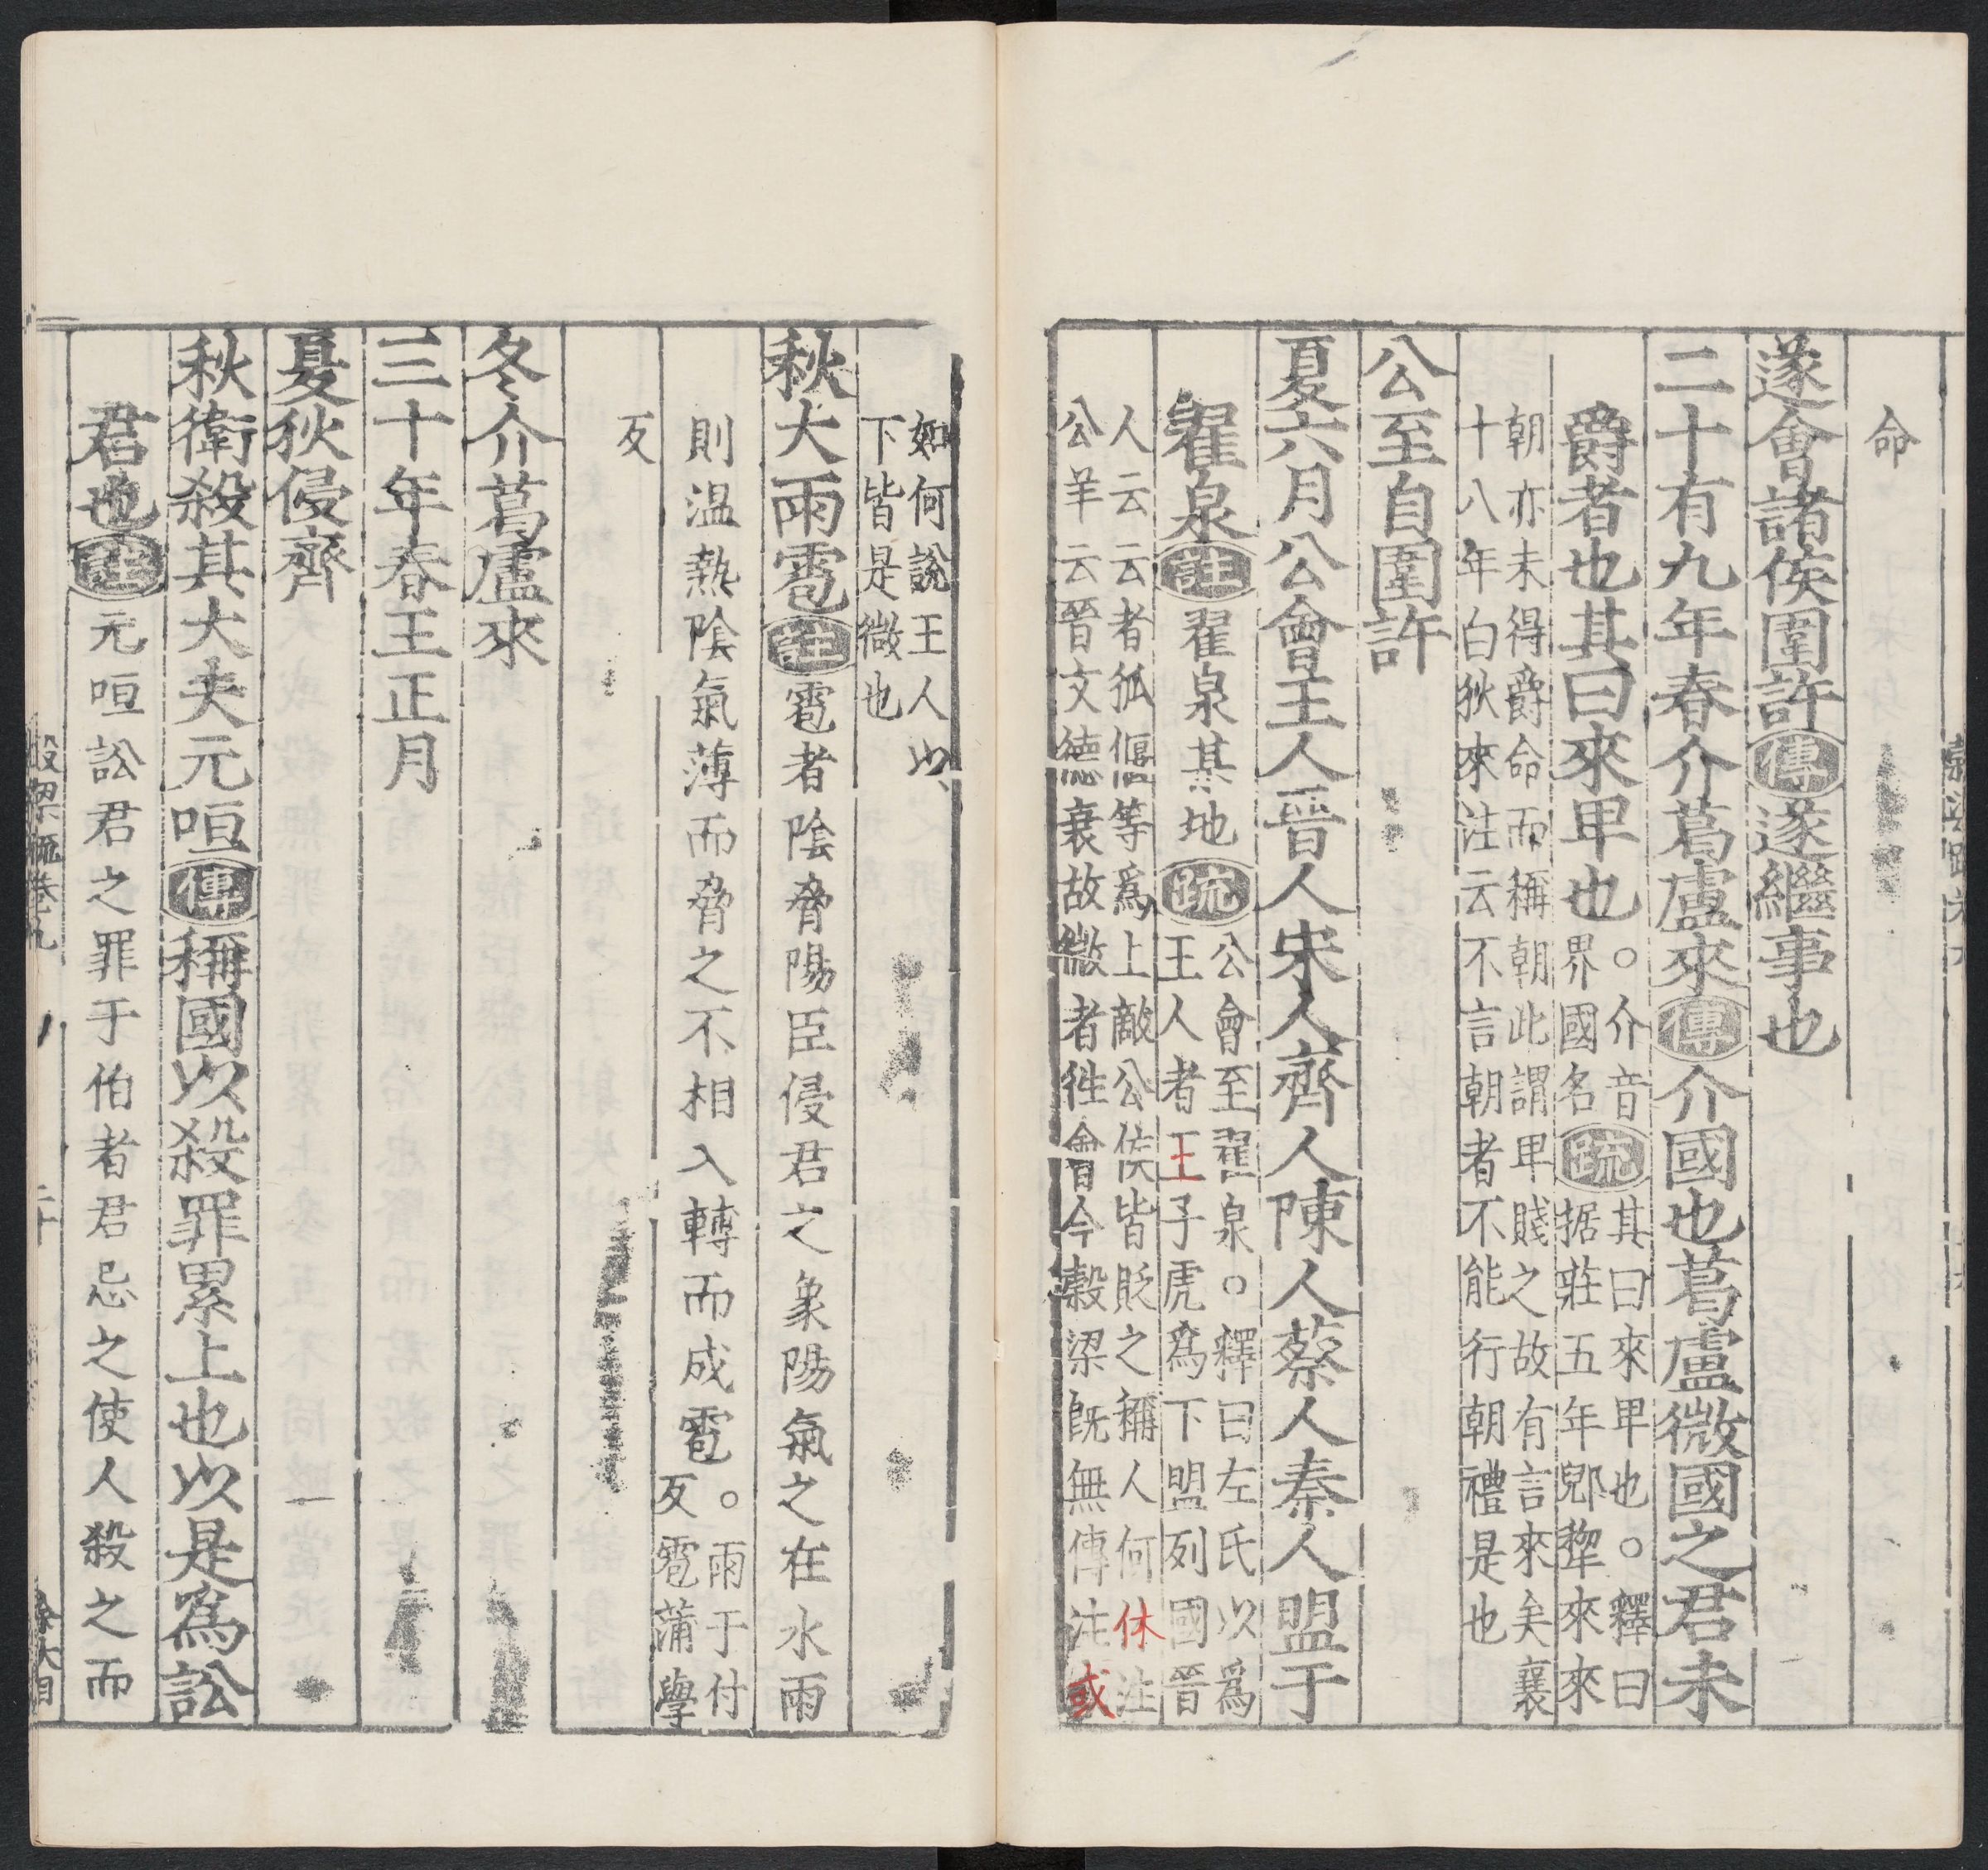 命
遂會諸侯圍許傳遂繼事也
二十有九年春介葛盧來傳介國也葛盧微國之君未
爵者也其曰來卑也
○介音
界國名
疏
其曰來卑也○釋曰
据莊五年郳犂來來
朝亦未得爵命而稱朝此謂卑賤之故有言來矣襄
十八年白狄來注云不言朝者不能行朝禮是也
公至自圍許
夏六月公會王人晉人宋人齊人陳人蔡人秦人盟于
翟泉註翟泉某地疏
公會至翟泉○釋曰左氏以爲
王人者王子虎爲下盟列國晉
人云云者狐偃等爲上敵公侯皆貶之稱人何休注
公羊云晉文德衰故微者徃會今穀梁旣無傳注或
如何說王人以
下皆是微也
秋大雨雹註雹者陰脅陽臣侵君之象陽氣之在水雨
則温熱陰氣薄而脅之不相入轉而成雹
○雨于付
反雹蒲學
反
冬介葛盧來
三十年春王正月
夏狄侵齊
秋衛殺其大夫元咺傳稱國以殺罪累上也以是爲訟
君也註元咺訟君之罪于伯者君忌之使人殺之而